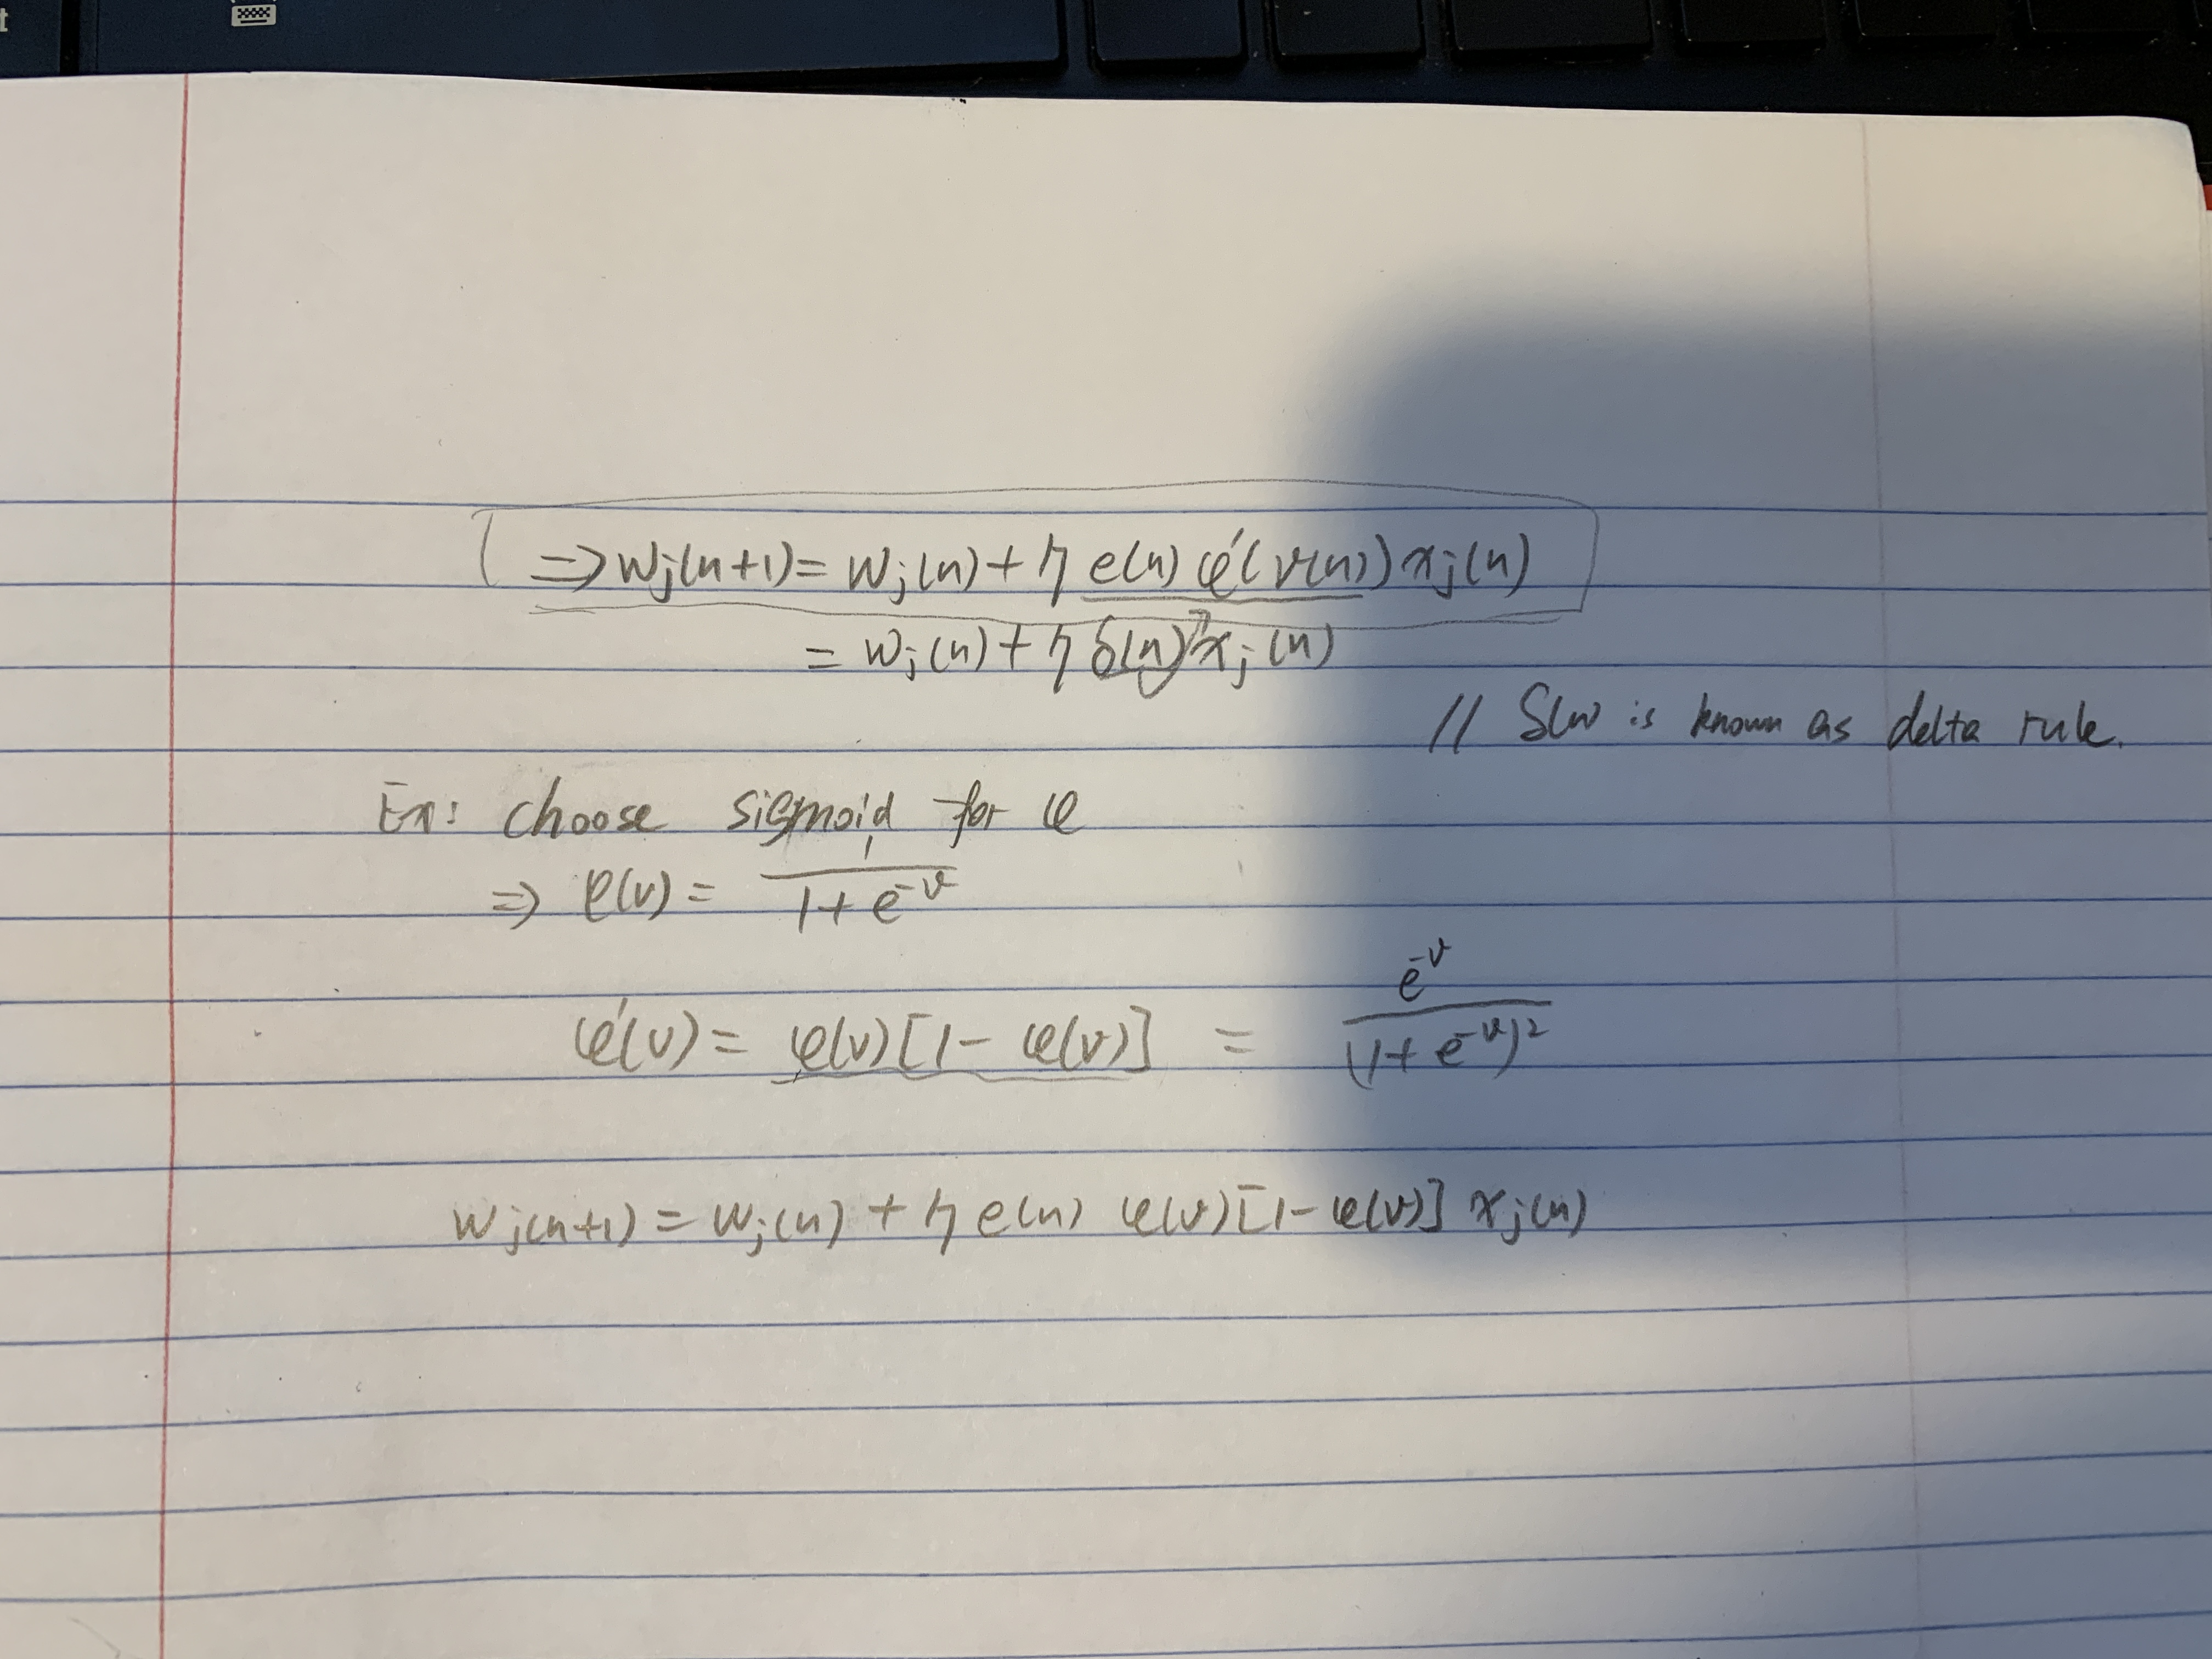 ⇒ wj(n+1) = wj(n) + η e(n) φ'(v(n)) xj(n)
= wj(n) + η δ(n) xj(n)
// δ(n) is known as delta rule.
Ex: choose sigmoid for φ
⇒ φ(v) = 1/(1+e^-v)
φ'(v) = φ(v)[1-φ(v)] = e^-v/(1+e^-v)²
wj(n+1) = wj(n) + η e(n) φ(v)[1-φ(v)] xj(n)